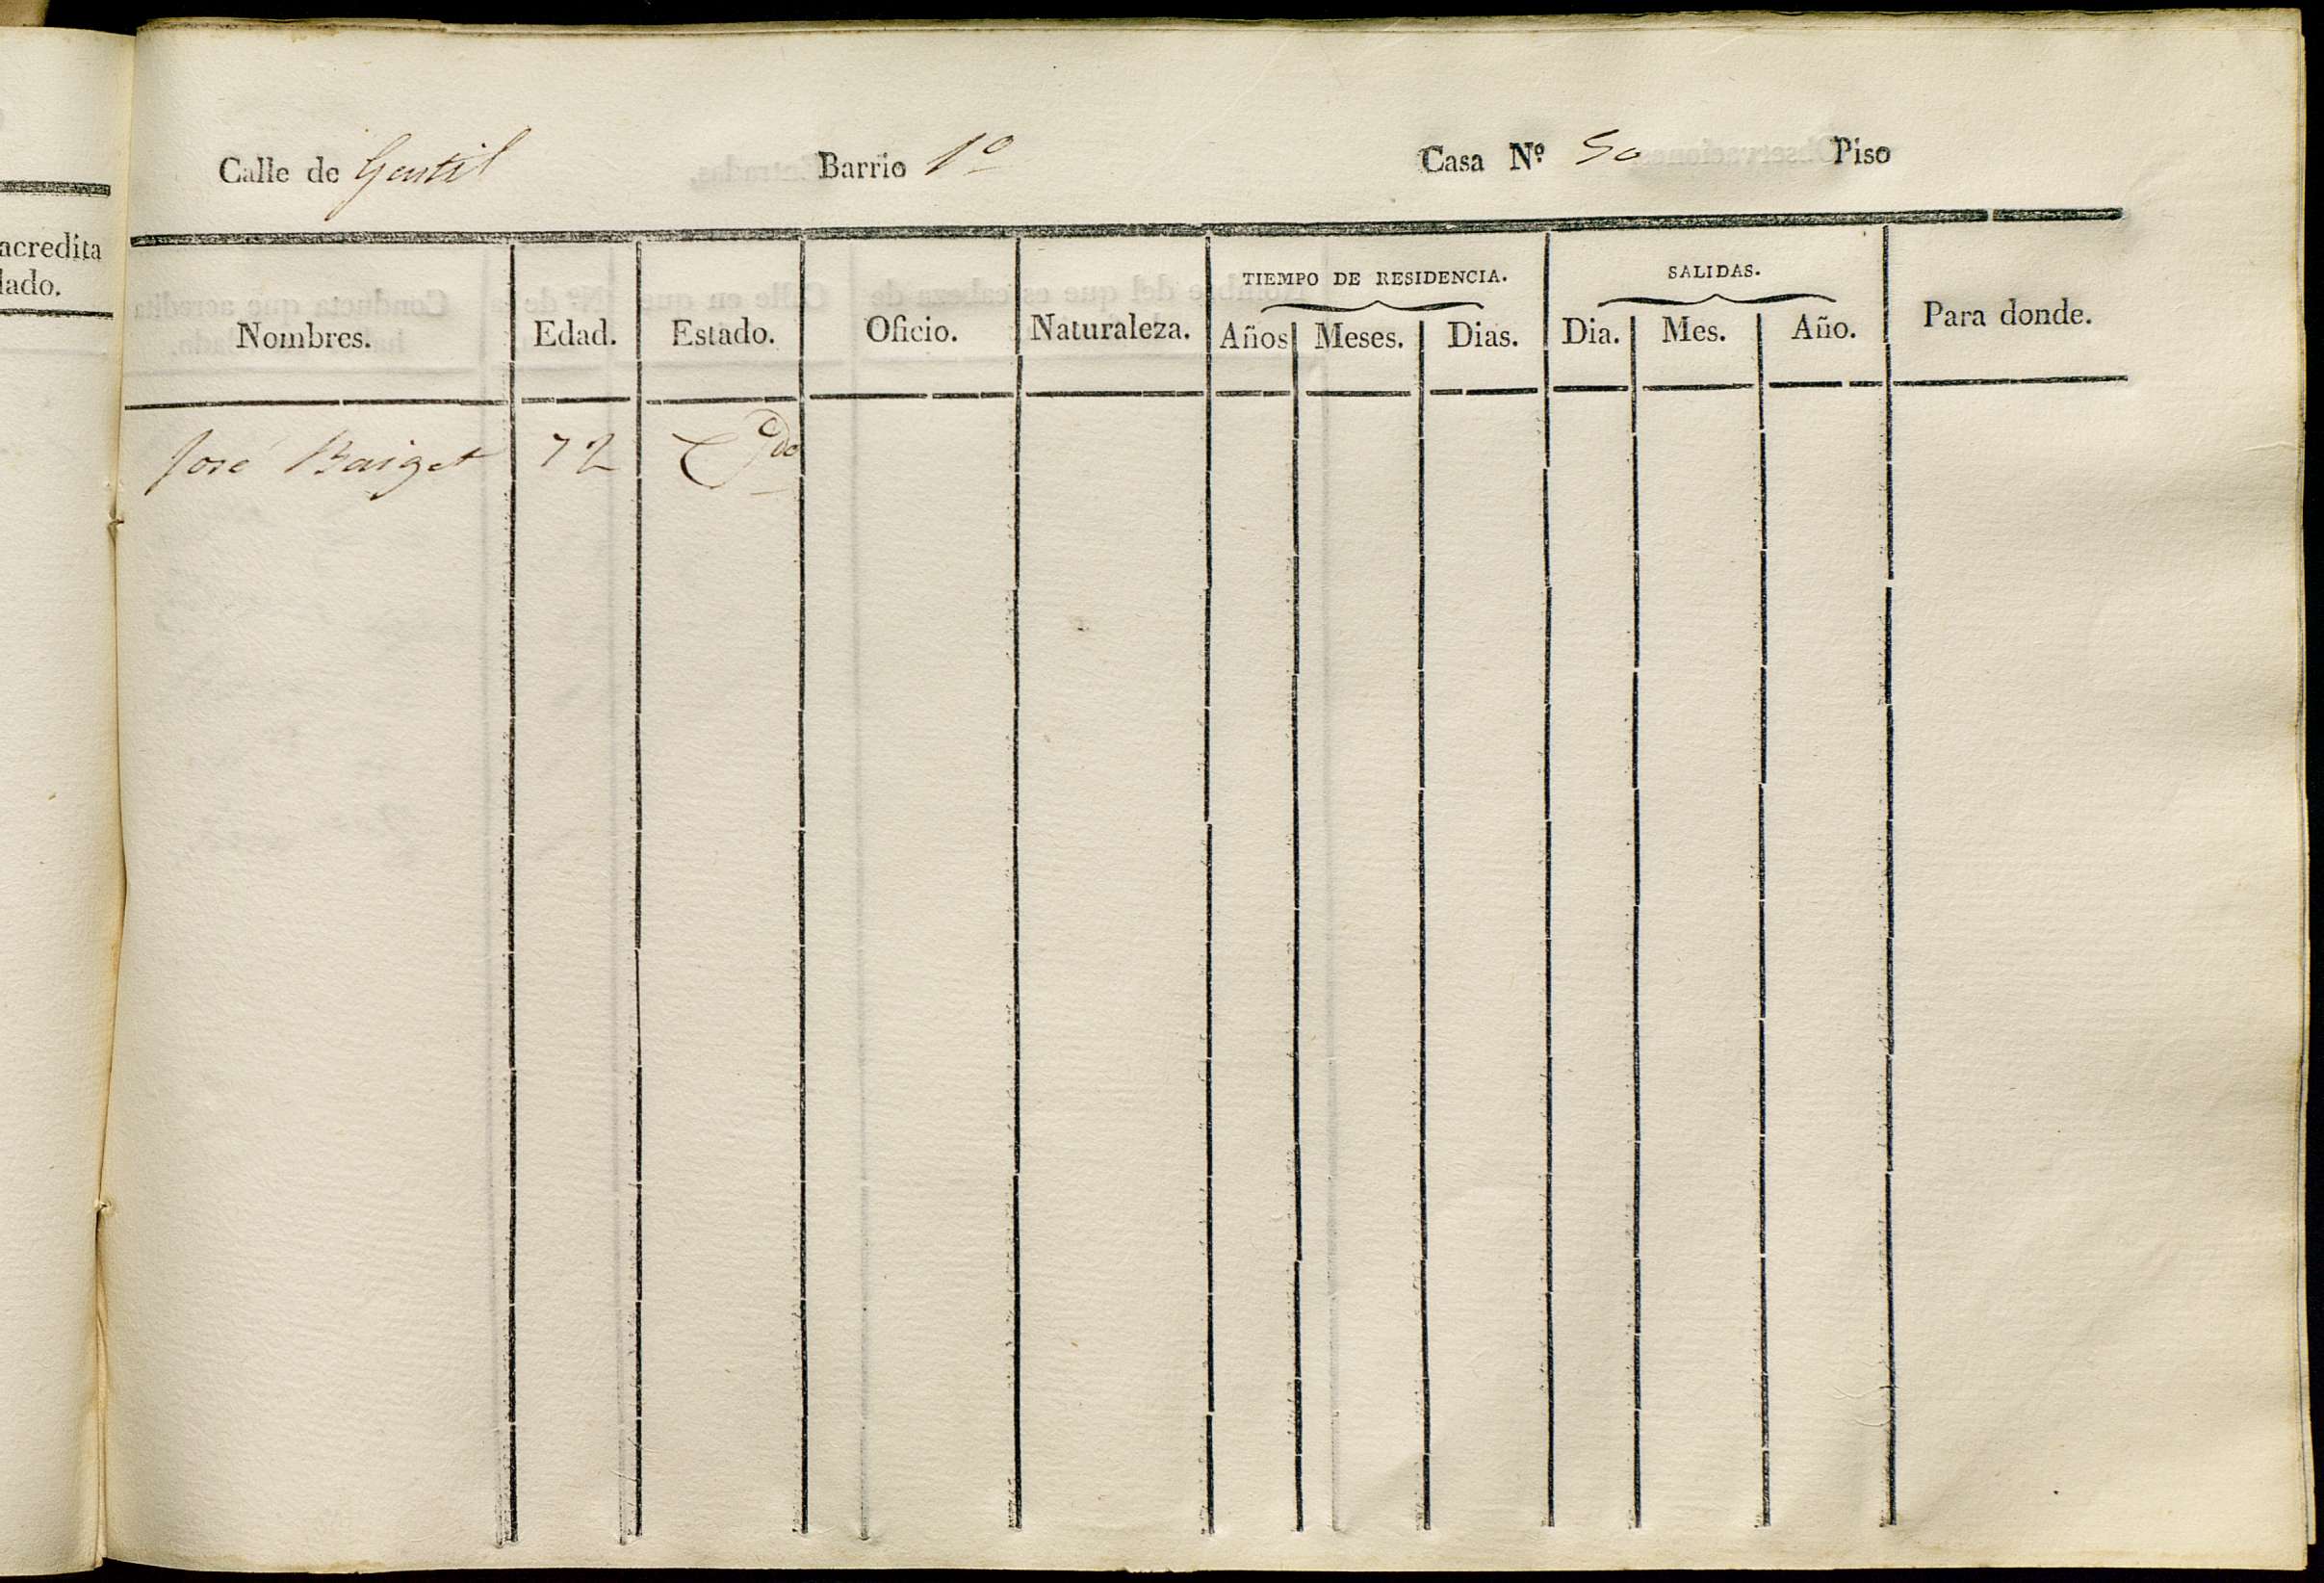 acredita
lado.
Calle de Gentil Barrio 1º Casa Nº 50 Piso
Nombres. Edad. Estado. Oficio. Naturaleza. TIEMPO DE RESIDENCIA. Años Meses. Dias. SALIDAS. Dia. Mes. Año. Para donde.
José Baiget 72 C.do